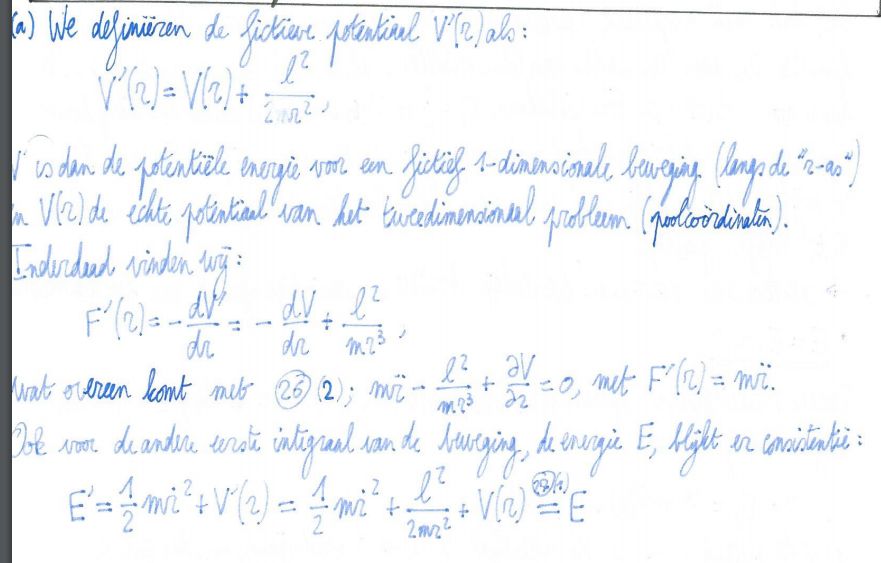 (a) We definiëren de fictieve potentiaal V'(r) als:
V'(r) = V(r) + l²/2mr²,
V' is dan de potentiële energie voor een fictief 1-dimensionale beweging (langs de "r-as")
en V(r) de echte potentiaal van het tweedimensionaal probleem (poolcoördinaten).
Inderdaad vinden wij:
F'(r) = - dV'/dr = - dV/dr + l²/mr³,
wat overeen komt met (26)(2); mr̈ - l²/mr³ + ∂V/∂r = 0, met F'(r) = mr̈.
Ook voor de andere eerste integraal van de beweging, de energie E, blijkt er consistentie:
E' = 1/2 mṙ² + V'(r) = 1/2 mṙ² + l²/2mr² + V(r) = E